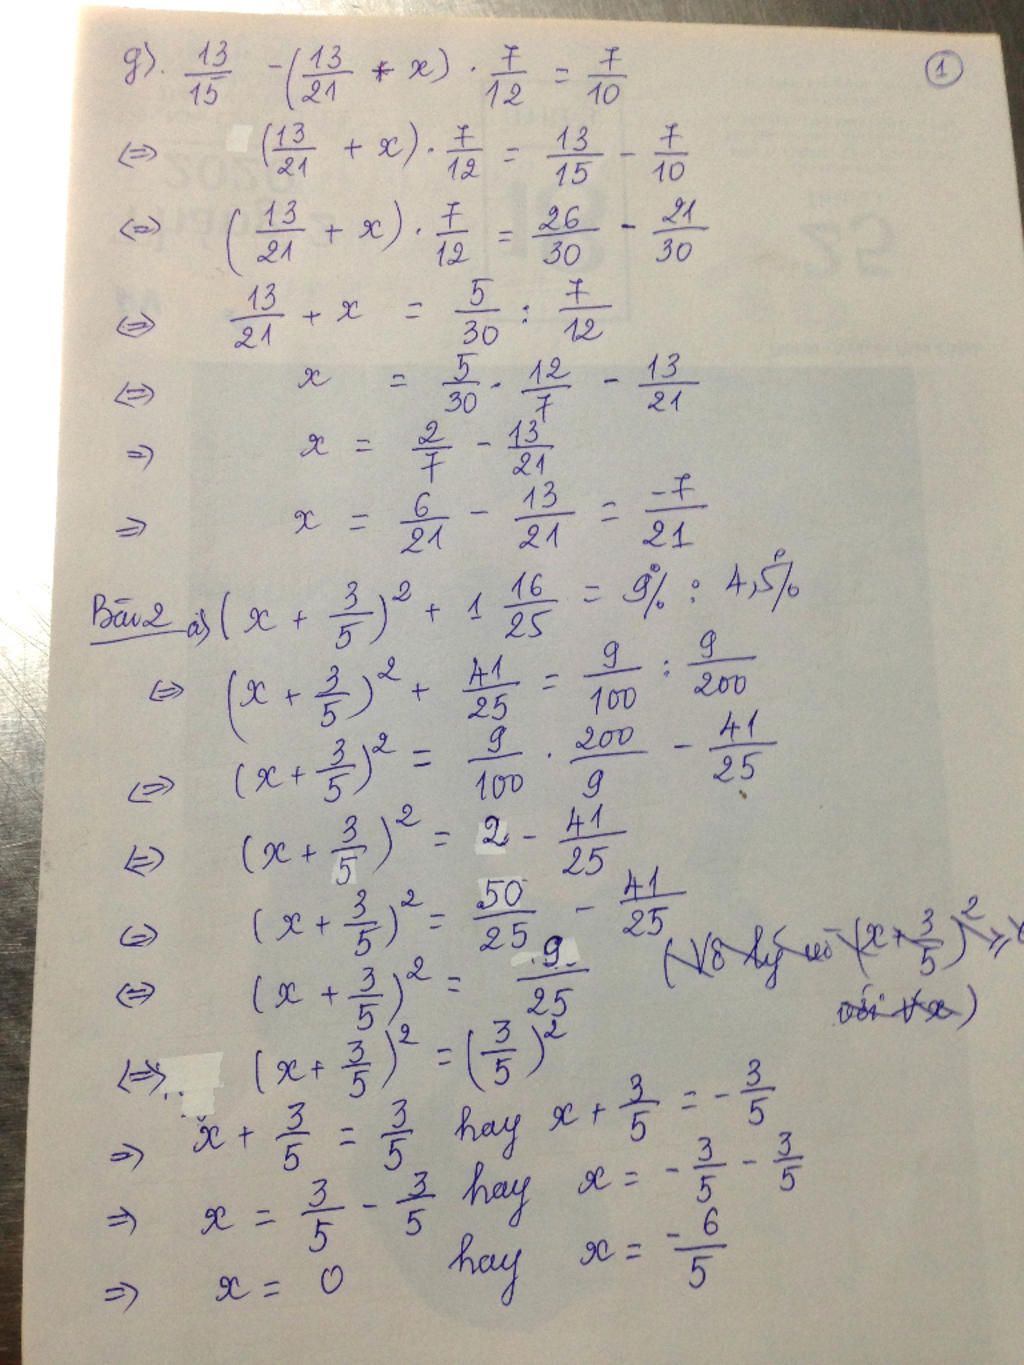 ①
g). 13/15 - (13/21 + x) · 7/12 = 7/10
⇔ (13/21 + x) · 7/12 = 13/15 - 7/10
⇔ (13/21 + x) · 7/12 = 26/30 - 21/30
⇔ 13/21 + x = 5/30 : 7/12
⇔ x = 5/30 · 12/7 - 13/21
⇒ x = 2/7 - 13/21
⇒ x = 6/21 - 13/21 = -7/21
Bài 2 a) (x + 3/5)² + 1 16/25 = 9% : 4,5%
⇔ (x + 3/5)² + 41/25 = 9/100 : 9/200
⇔ (x + 3/5)² = 9/100 · 200/9 - 41/25
⇔ (x + 3/5)² = 2 - 41/25
⇔ (x + 3/5)² = 50/25 - 41/25
⇔ (x + 3/5)² = 9/25 (Vô lý vì (x + 3/5)² ≥
với ∀x)
⇔ (x + 3/5)² = (3/5)²
⇒ x + 3/5 = 3/5 hay x + 3/5 = - 3/5
⇒ x = 3/5 - 3/5 hay x = - 3/5 - 3/5
⇒ x = 0 hay x = -6/5